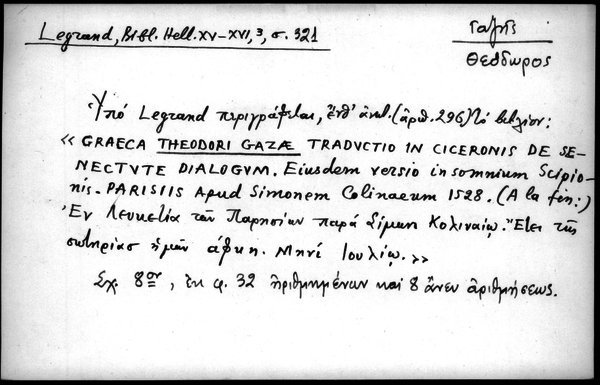 Legrand, Bibl. Hell. XV-XVI, 3, σ. 321
Γαζῆς
Θεόδωρος
Ὑπό Legrand περιγράφεται, ἔνθ' ἀνωτ. (ἀρθ. 296) τό βιβλίον:
« GRAECA THEODORI GAZÆ TRADVCTIO IN CICERONIS DE SE-
NECTVTE DIALOGVM. Eiusdem versio in somnium Scipio-
nis. PARISIIS Apud Simonem Colinaeum 1528. (A la fin:)
Ἐν Λευκετίᾳ τῶν Παρησίων παρά Σίμωνι Κολιναίῳ. Ἔτει τῆς
σωτηρίας ἡμῶν ἀφκη. Μηνί Ἰουλίῳ. »
Σχ. 8ον, ἐκ φ. 32 ἠριθμημένων καί 8 ἄνευ ἀριθμήσεως.